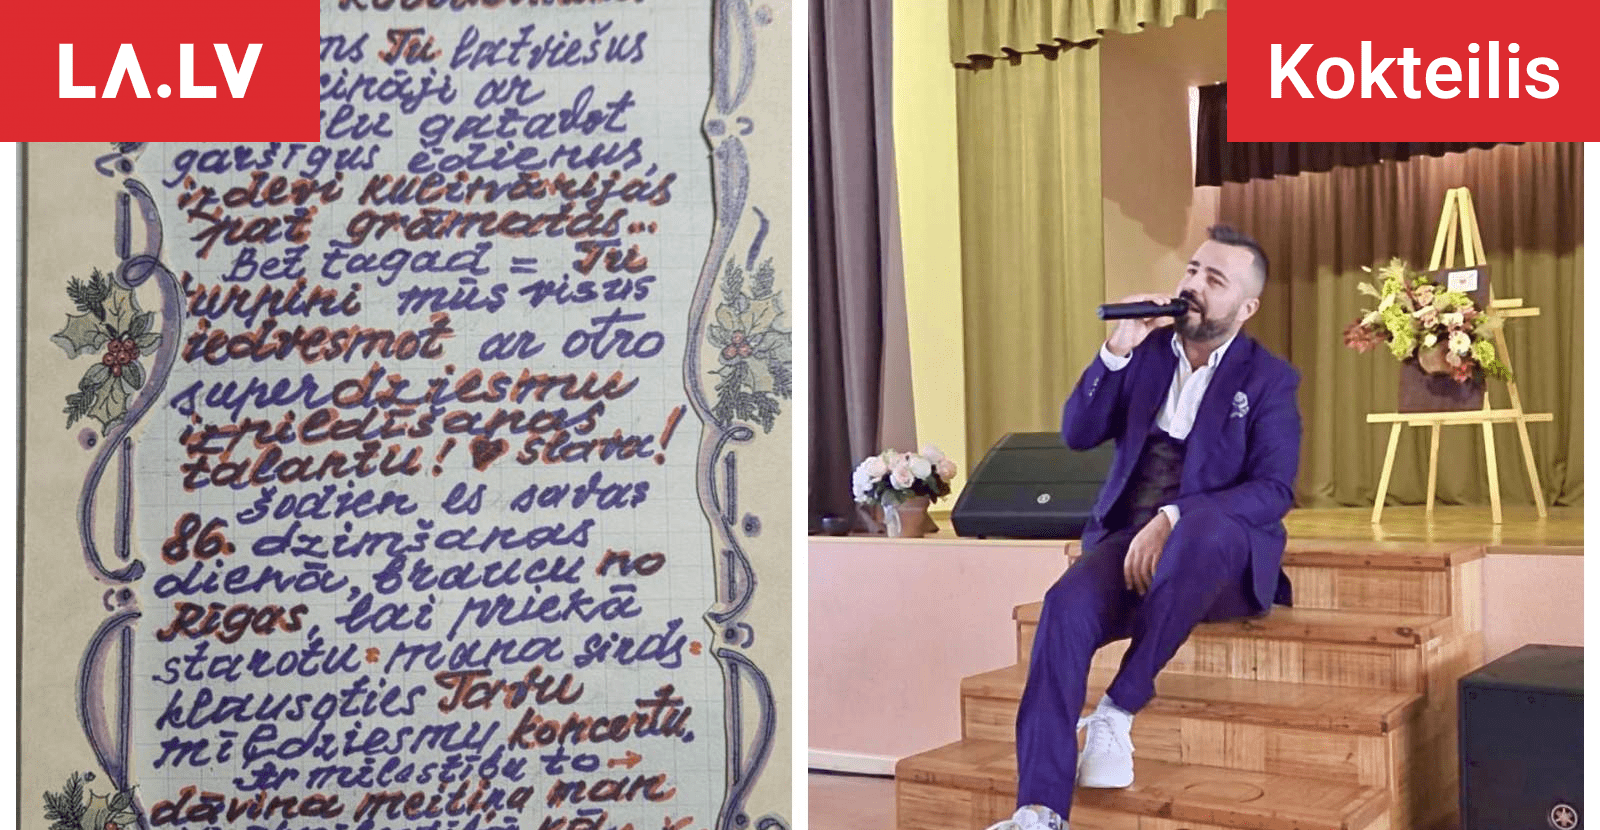 LA.LV
Kokteilis
Tu latviešus
ar
gatavot
garšīgus ēdienus,
izdevi kulinārijas
pat grāmatas...
Bet tagad = Tu
turpini mūs visus
iedvesmot ar otro
superdziesmu
izpildīšanas
talantu! ♥ Slava!
Šodien es savas
86. dzimšanas
dienā, braucu no
Rīgas, lai priekā
starotu mana sirds
klausoties Tavu
mīļdziesmu koncertu.
Ar mīlestību to →
dāvina meitiņa man